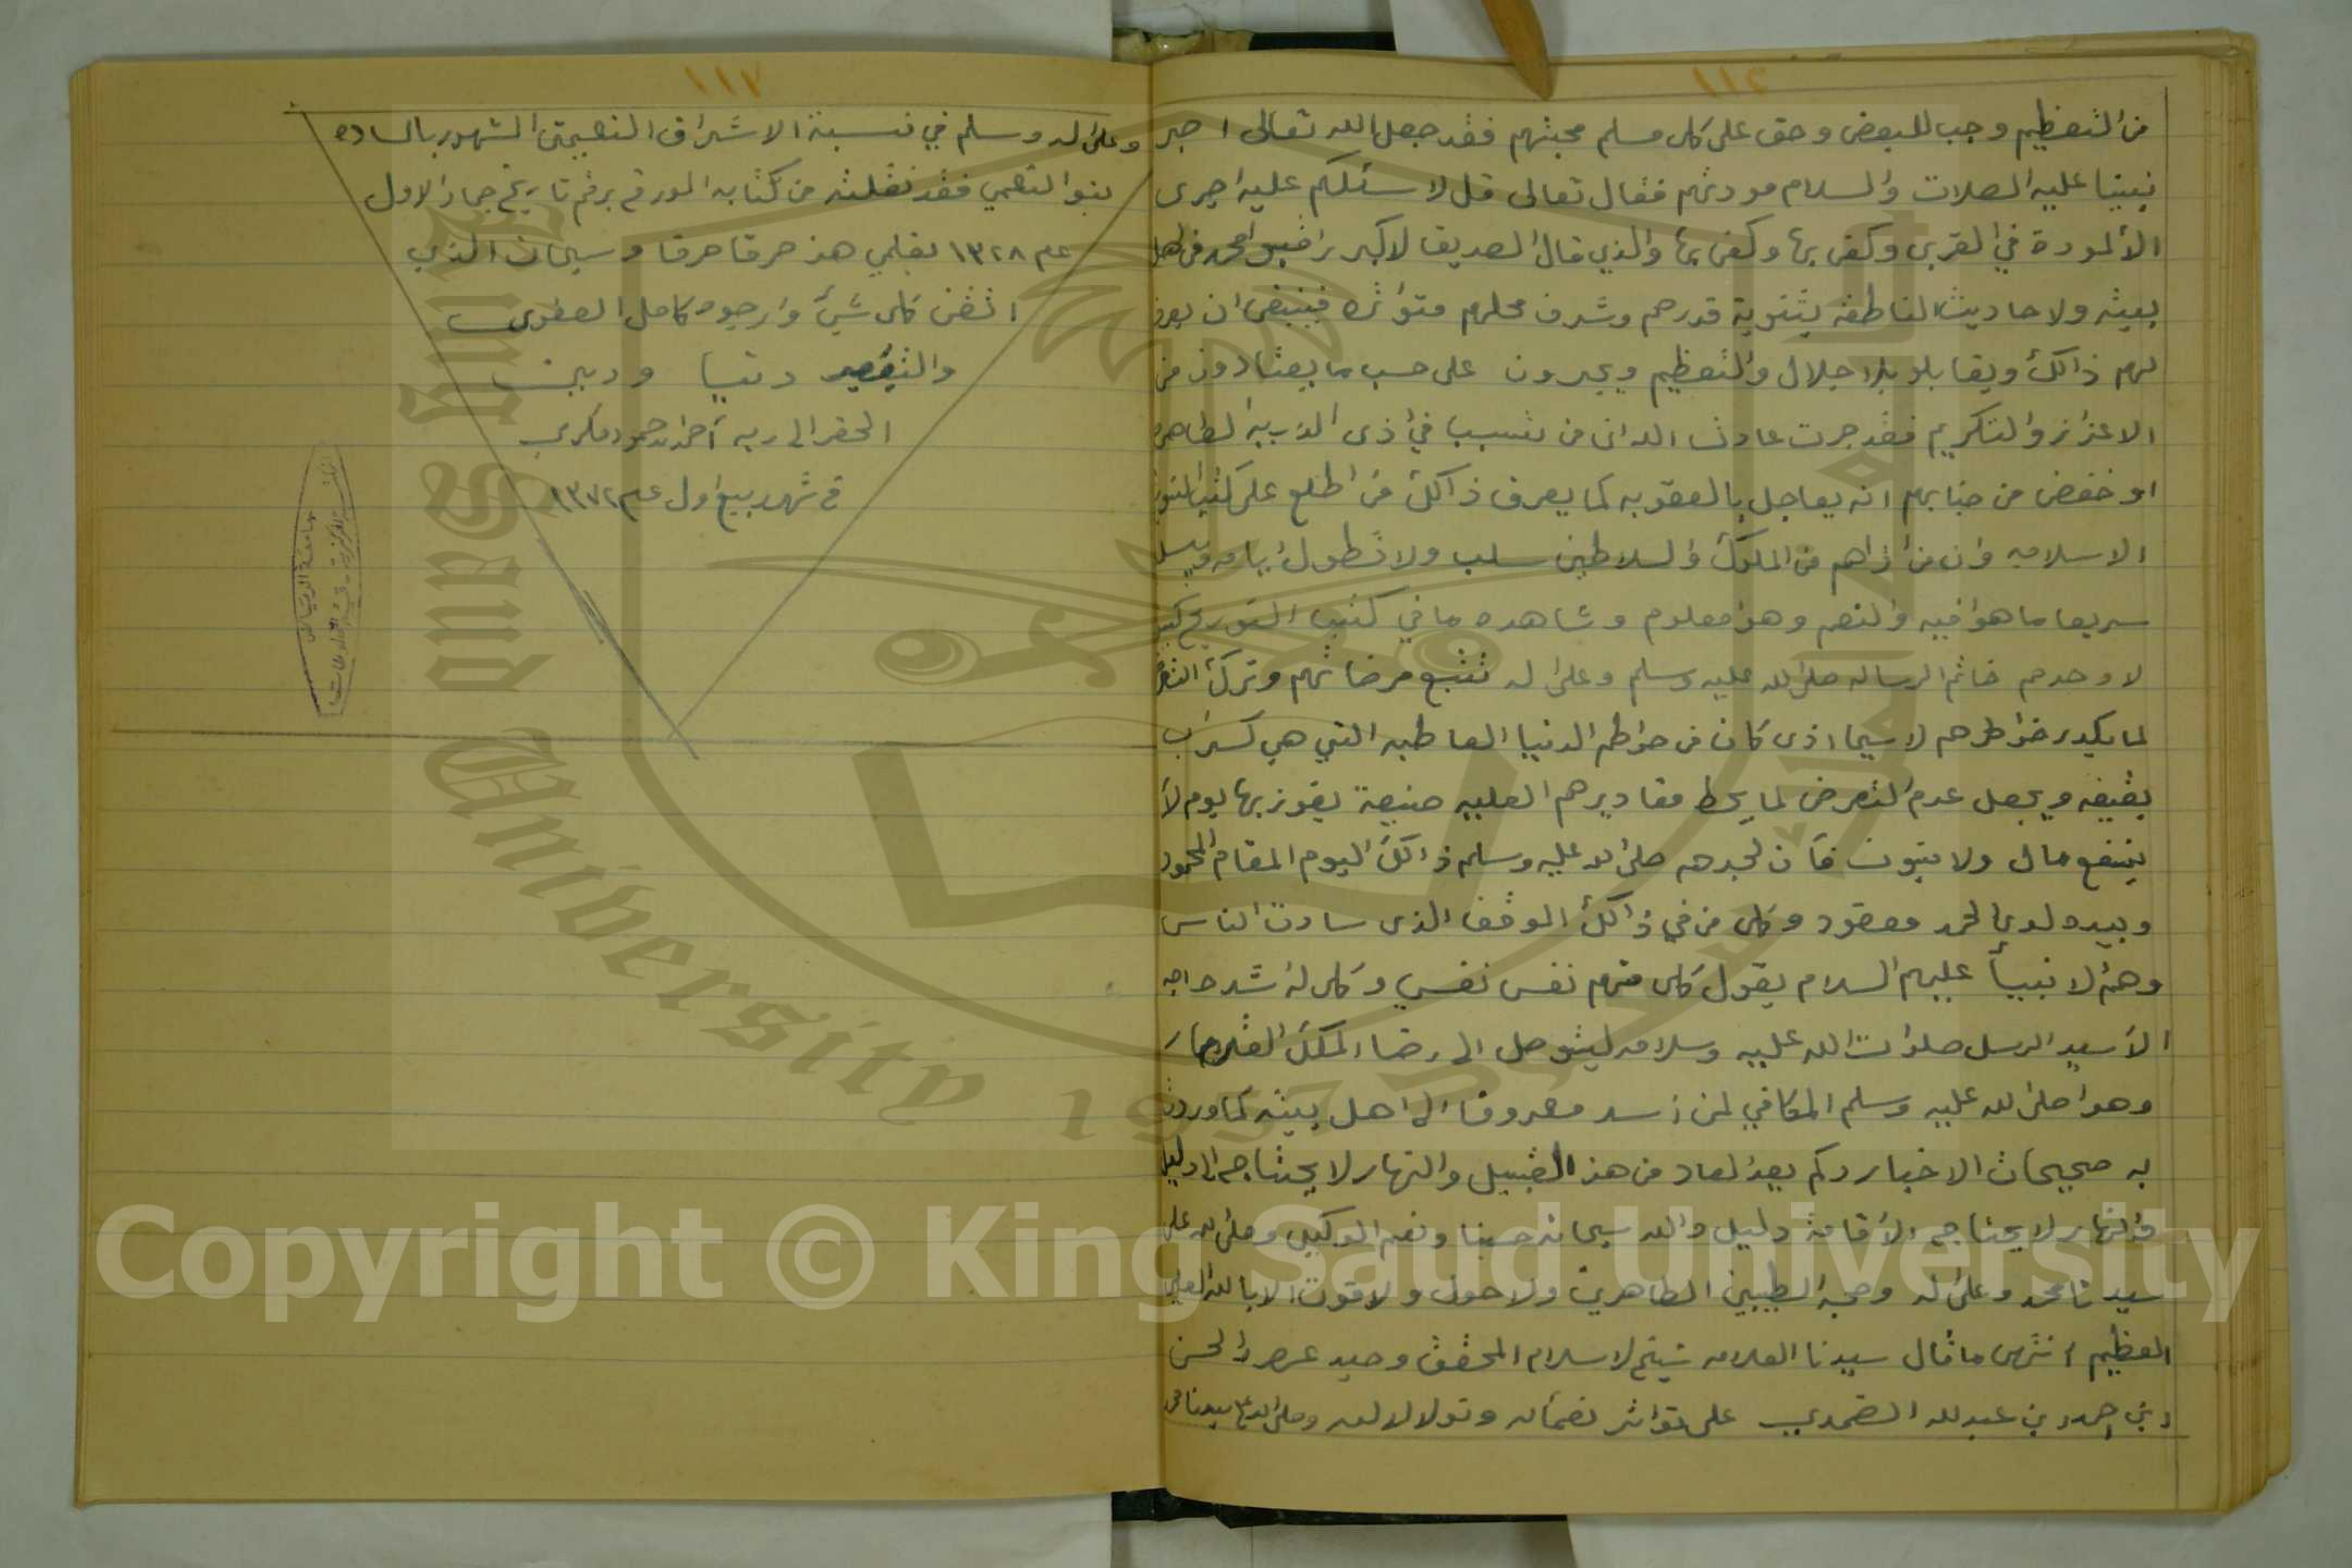 ١١٦
من التعظيم وجب للبعض وحق على كل مسلم محبتهم فقد جعل الله تعالى اجر
نبينا عليه الصلات والسلام مودتهم فقال تعالى قل لا سئلكم عليه اجرى
الألمودة في القربى وكفى بها وكفى بها والذي قال الصديق لاكبر راقبو محمد في اهل
بيته ولاحاديث الناطقه بتنويه قدرهم وشرف محلهم متواتره فينبغى ان يعرف
لهم ذالك ويقابلو بلاجلال والتعظيم ويجرون على حسب ما يعتادون من
الاعتزاز والتكريم فقد جرت عادت الله ان من تسبب في اذى الذريه الطاهره
او خفض من جنابهم انه يعاجل بالعقوبه كما يعرف ذالك من اطلع على كتب
الاسلاميه وان من اذاهم من الملوك والسلاطين سلب ولا تطول ايامه ويسلب
سريعا ما هوا فيه والنعم وهذ معلوم وشاهده ما في كتب التوريخ
لاوحدهم خاتم الرساله صلى الله عليه وسلم وعلى اله تتبع مرضاتهم وترك
لما يكدر خواطرهم لاسيما اذى كان من حواطم الدنيا العاطيه التي هي كسراب
بقيعه ويجعل عدم التعرض لما يحط مقاديرهم العليه صنيعة يفوز بها يوم لا
ينفع مال ولا بنون فأن لجدهم صلى الله عليه وسلم ذالك اليوم المقام المحمود
وبيده لوى الحمد معقود وكل من في ذالك الموقف الذى سادت الناس
وهم لا نبيأ عليهم السلام يقول كل منهم نفس نفسي وكل له شده
الأسيد الرسل صلوات الله عليه وسلامه ليتوصل الى رضا الملك
وهوا صلى الله عليه وسلم المكافي لمن اسد معروفا الى اهل بيته كما وردت
به صحيحات الاخبار وكم يعد لعاد من هذ القبيل والنهار لا يحتاج الى دليل
والنهار لا يحتاج الأقامة دليل والله سبحانه حسبنا ونعم الوكيل وصلى الله على
سيدنا محمد وعلى اله وصحبه الطيبين الطاهرين ولا حول ولا قوت الا بالله العلي
العظيم انتهى ما قال سيدنا العلامه شيخ لاسلام المحقق وحيد عصره الحسن
ابن احمد بن عبدلله الضمدي على تواتر وصلى الله على سيدنا محمد
١١٧
وعلى اله وسلم في نسبة الاشراف النعيمتى الشهور بالساده
بنو النعمي فقد نقلته من كتابه المورخ برقم تاريخ جماد الاول
عام ١٣٢٨ بقلمي هذ حرفا حرفا وسبحان الذي
اتقن كل شيئ وارجوه كامل العفوى
والتيسير دنيا ودين
الحقر الى ربه احمد حمود مكرمي
في شهر ربيع اول عام ١٣٧٢
جامعة الرياض
Copyright © King Saud University
King Saud University 1957